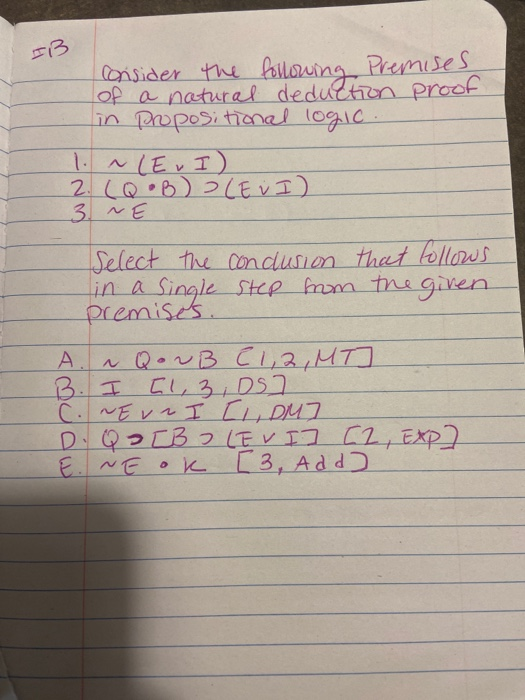 IB
Consider the following Premises
of a natural deduction proof
in propositional logic.
1. ~(E v I)
2. (Q • B) ⊃ (E v I)
3. ~E
Select the conclusion that follows
in a single step from the given
premises.
A. ~Q • ~B [1, 2, MT]
B. I [1, 3, DS]
C. ~E v ~I [1, DM]
D. Q ⊃ [B ⊃ (E v I] [2, Exp]
E. ~E • K [3, Add]